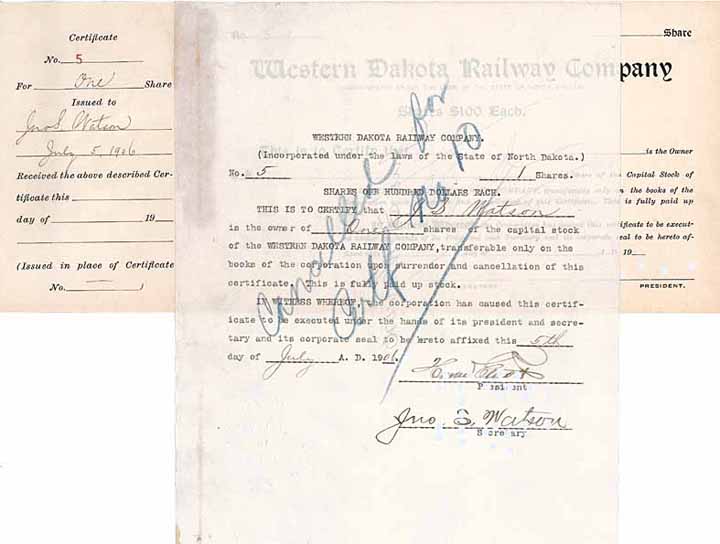 Certificate
No. 5
For One Share
Issued to
Jno S. Watson
July 5, 1906
Received the above described Cer-
tificate this
day of 19
(Issued in place of Certificate
No. )
No. 5
Western Dakota Railway Company
Shares $100 Each.
This is to Certify that
WESTERN DAKOTA RAILWAY COMPANY.
(Incorporated under the laws of the State of North Dakota.)
No. 5 1 Shares.
SHARES ONE HUNDRED DOLLARS EACH.
THIS IS TO CERTIFY that J S Watson
is the owner of One shares of the capital stock
of the WESTERN DAKOTA RAILWAY COMPANY, transferable only on the
books of the corporation upon surrender and cancellation of this
certificate. This is fully paid up stock.
IN WITNESS WHEREOF, the corporation has caused this certif-
icate to be executed under the hands of its president and secre-
tary and its corporate seal to be hereto affixed this 5th
day of July A. D. 1906.
President
Jno. S. Watson
Secretary
Cancelled for
Certf No 10
Share
is the Owner
Capital Stock of
on the books of the
is fully paid up
certificate to be execut-
seal to be hereto af-
19
PRESIDENT.